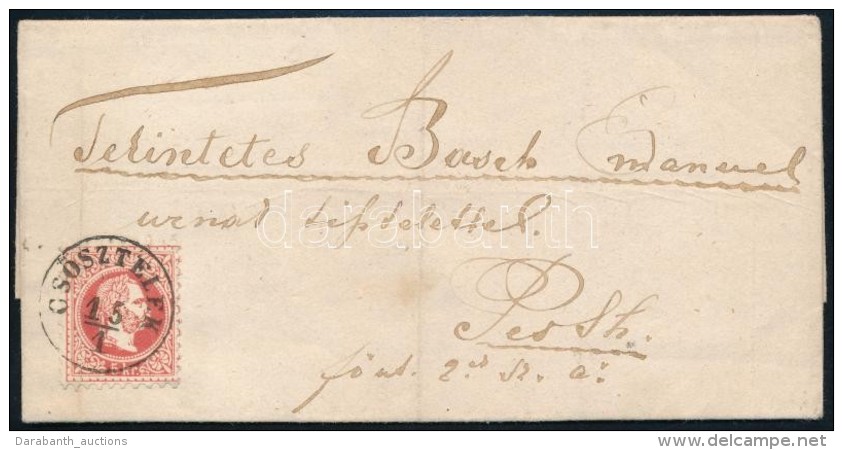 Tekintetes Basch Emanuel
urnak tisztelettel.
Pesth.
főut. 2ik sz. a:
CSOSZTELEK
15
1
5 KR.
darabanth
Darabanth_auctions
http://www.delcampe.net